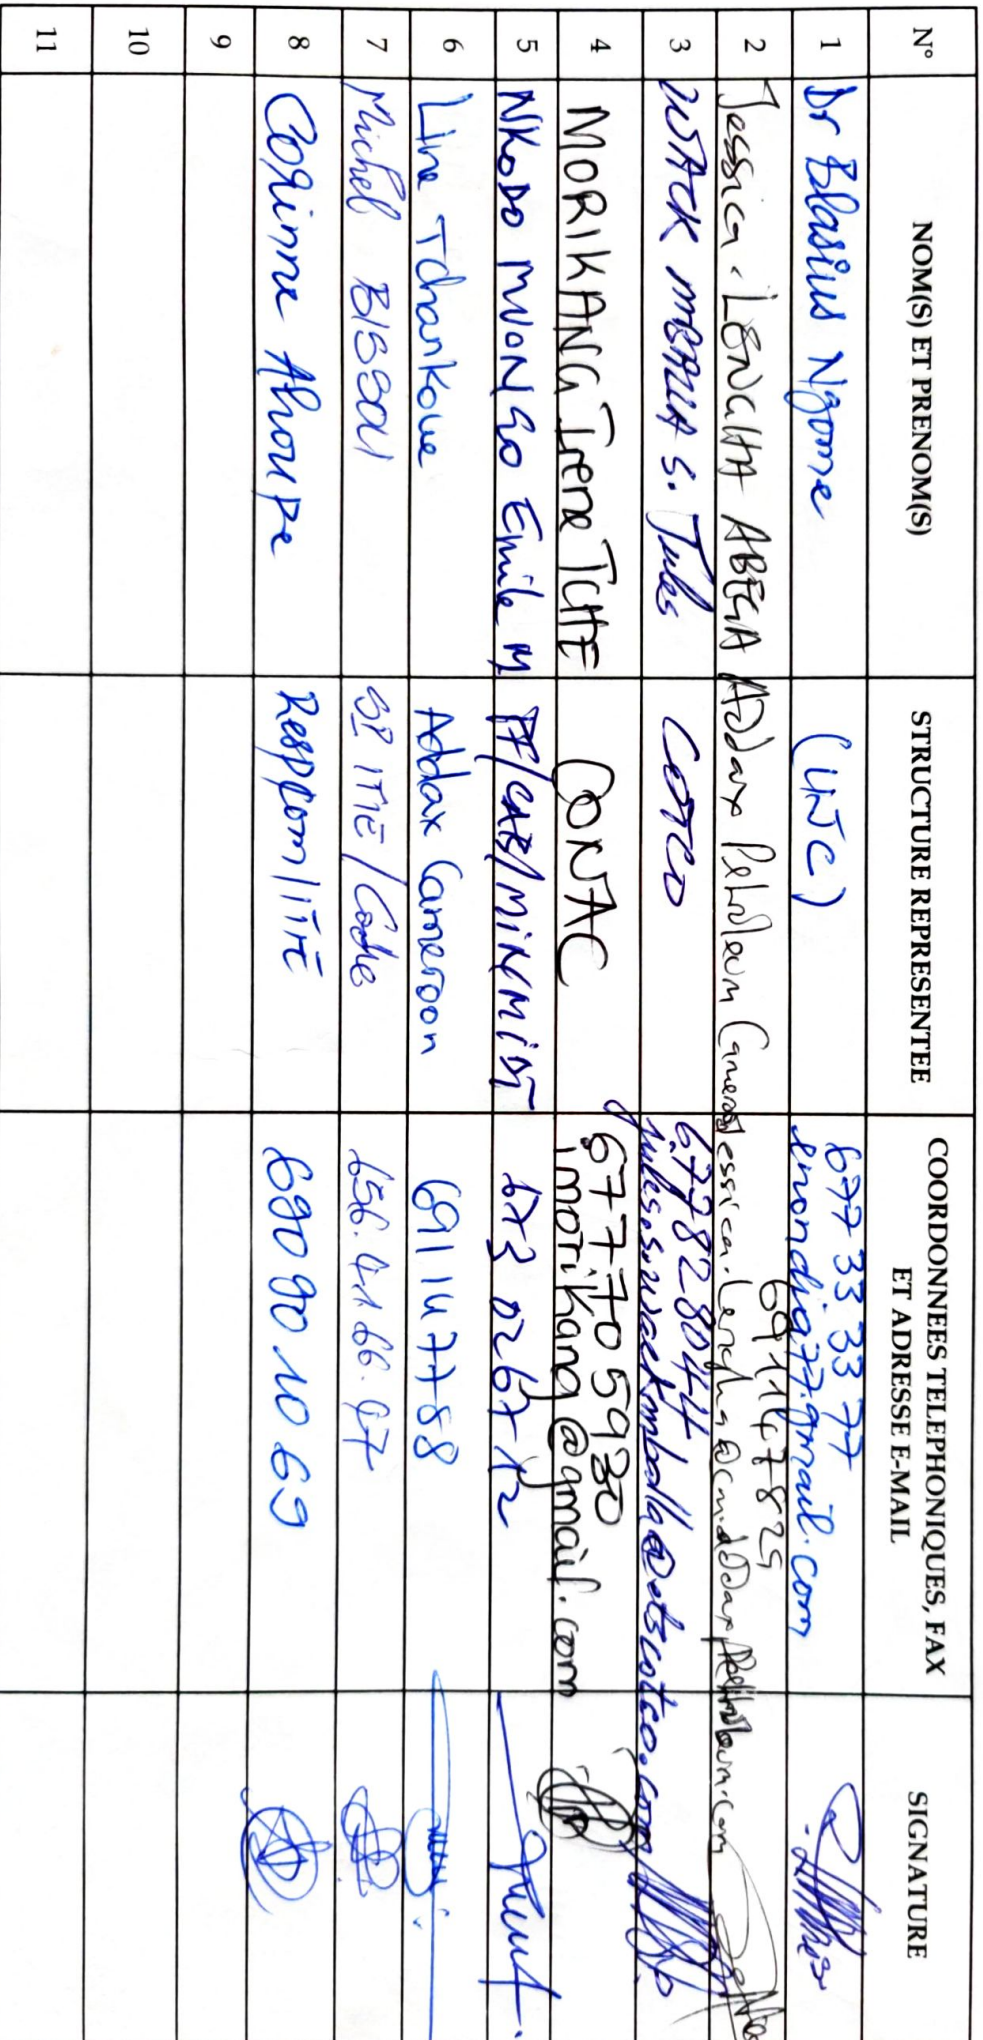 N° NOM(S) ET PRENOM(S) STRUCTURE REPRESENTEE COORDONNEES TELEPHONIQUES, FAX ET ADRESSE E-MAIL SIGNATURE
1 Dr Blasius Ngome (UJC) 677 33 33 77
enondia77.gmail.com
2 Jessica LENGHA ABEGA Addax Petroleum Cameroon 691147825
jessica.lengha@cm.addaxpetroleum.com
3 WACK MBALLA S. Jules COTCO 677828044
jules.s.wackmballa@etscotco.com
4 MORIKANG Irene TCHE CONAC 677705930
imorikang@gmail.com
5 NKODO MVONGO Emile M PF/CAB/MINMIDT 673 026712
6 Line Tchankoue Addax Cameroon 691147788
7 Michel BISSOU SP ITIE / 656.41.66.07
8 Corinne Ahoupe Respcom/ITIE 690 90 10 69
9
10
11